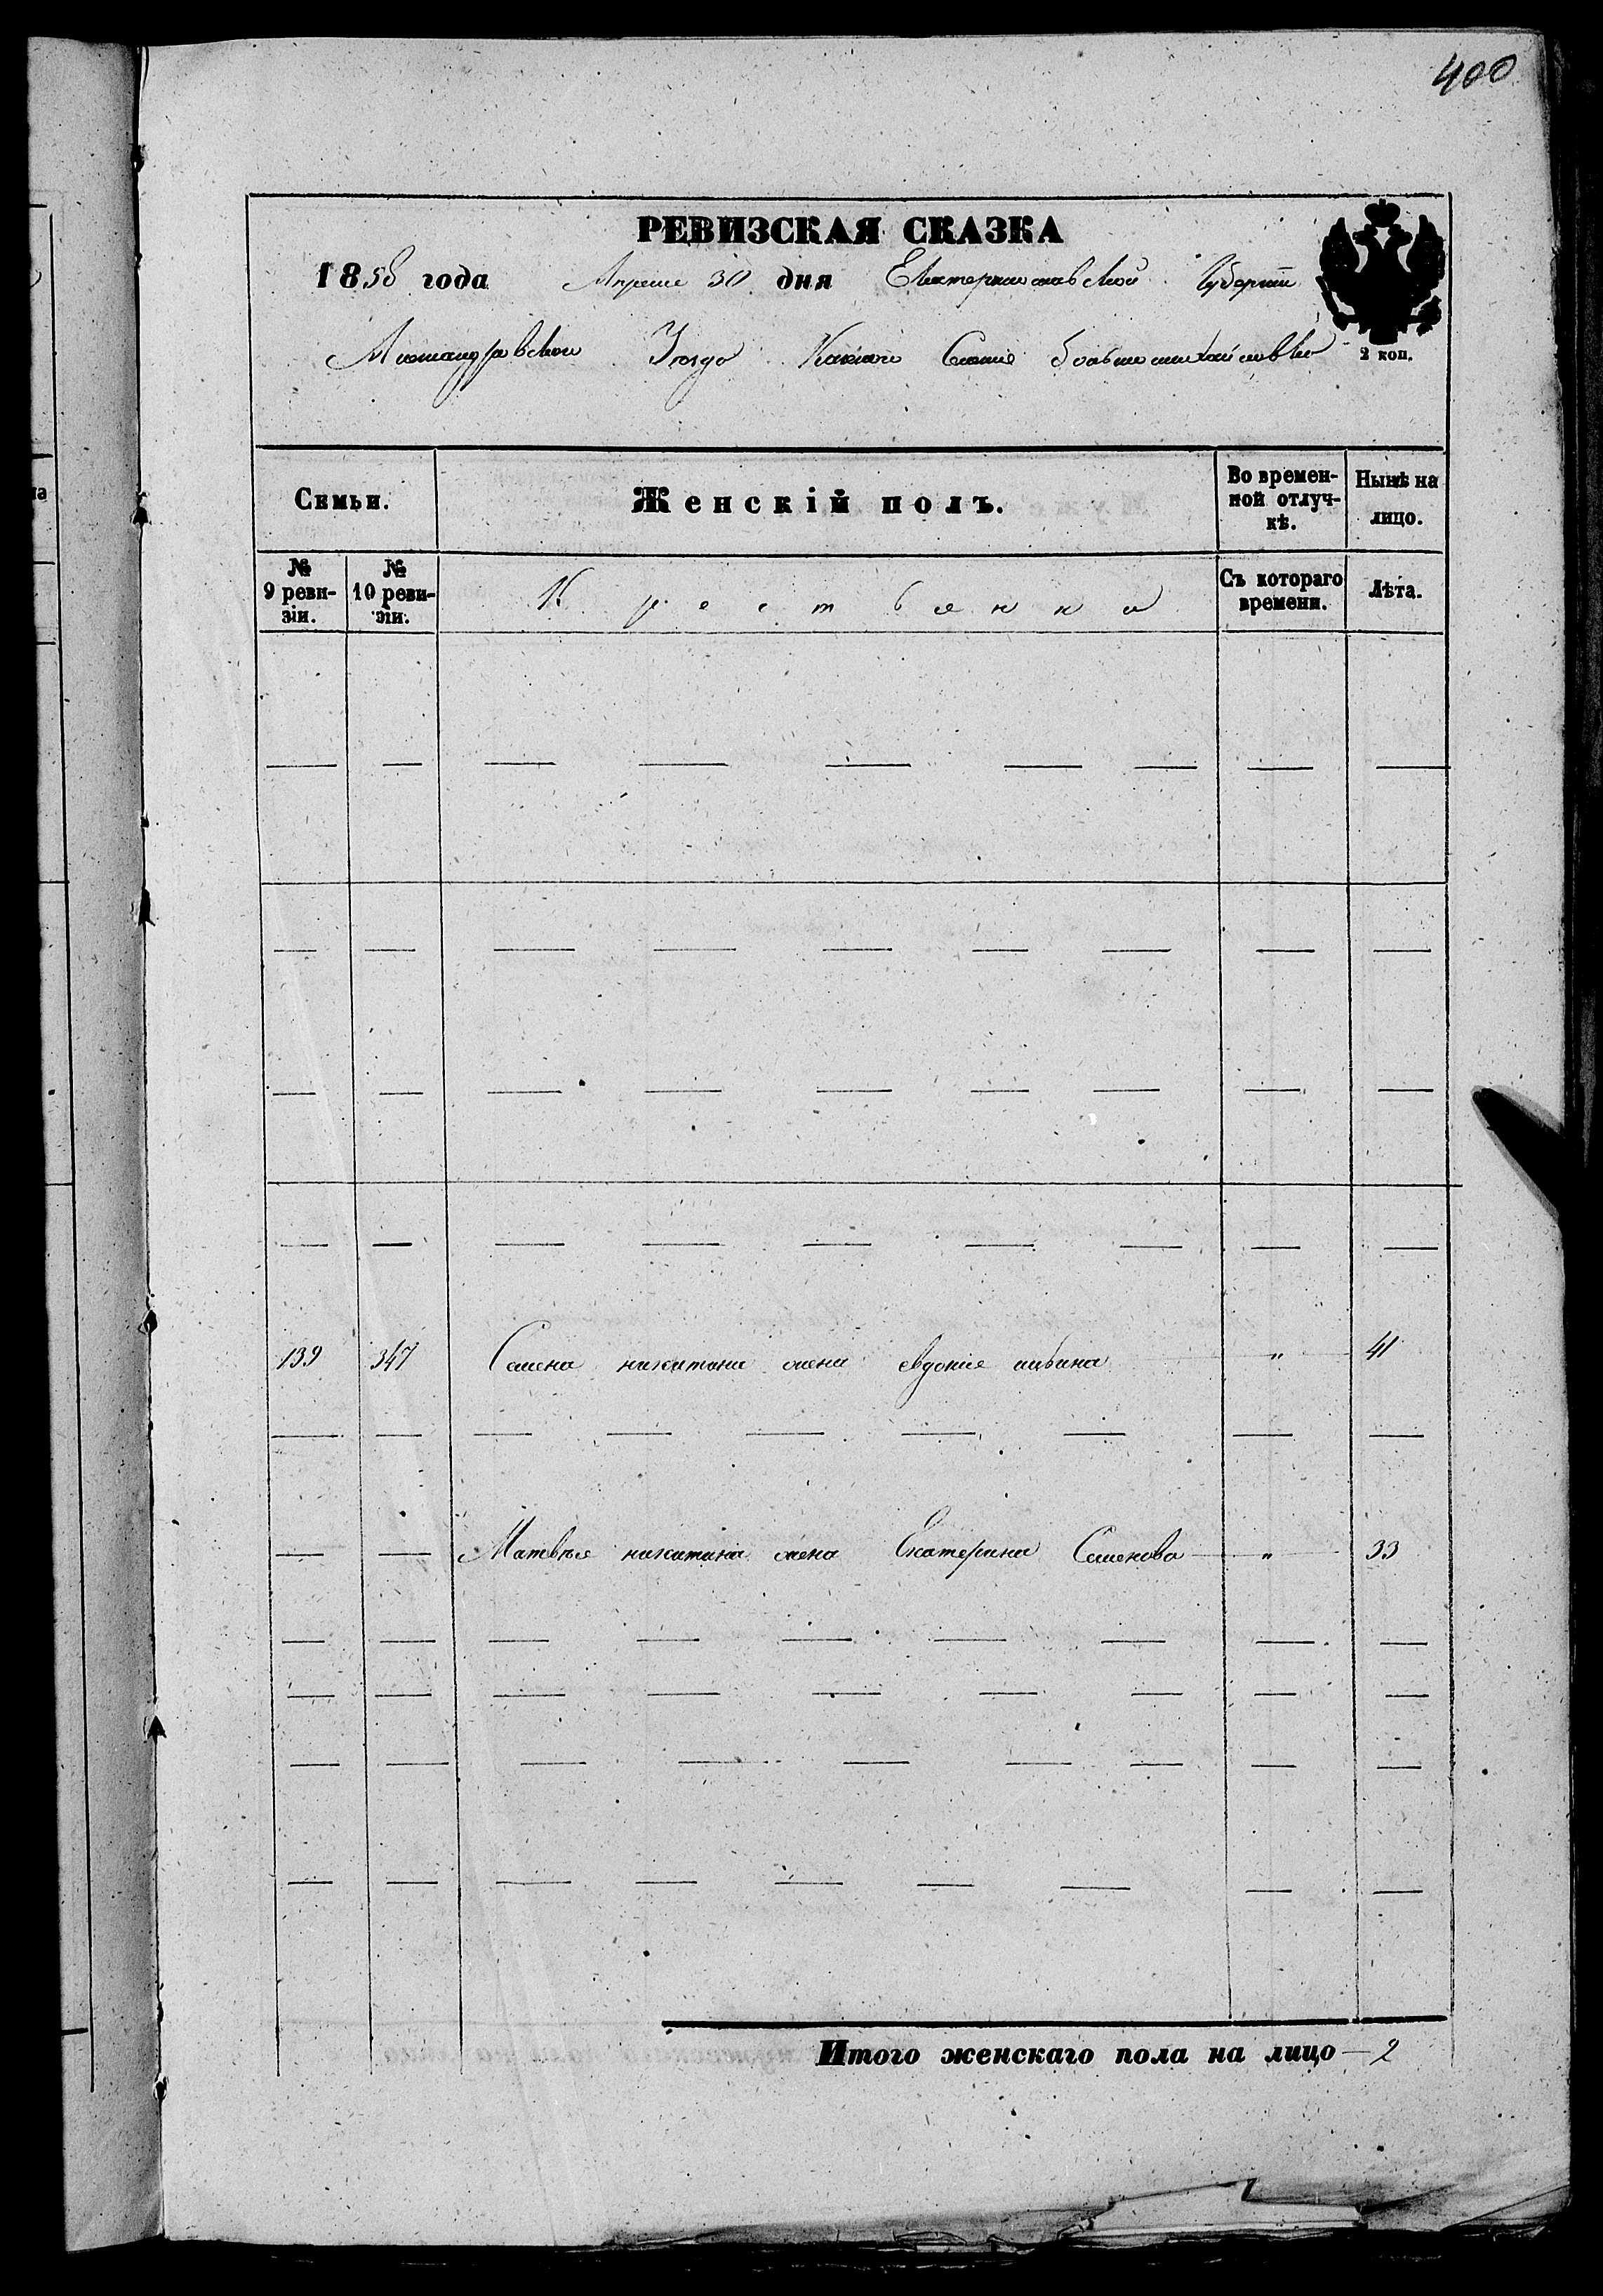 400
РЕВИЗСКАЯ СКАЗКА
1858 года Апреля 30 дня Екатеринославской Губернии
Александровского Уезда Казенного Селения Большемихайловки
2 коп.
Симьи. Женскій полъ. Во времен-
ной отлуч-
кѣ. Нынѣ на
лицо.
№
9 реви-
зіи. №
10 реви-
зіи. Крестьянка Съ котораго
времени. Лѣта.
139 347 Семена никитина жена евдокия " 41
Матвѣя никитина жена Екатерина Семенова " 33
Итого женскаго пола на лицо 2